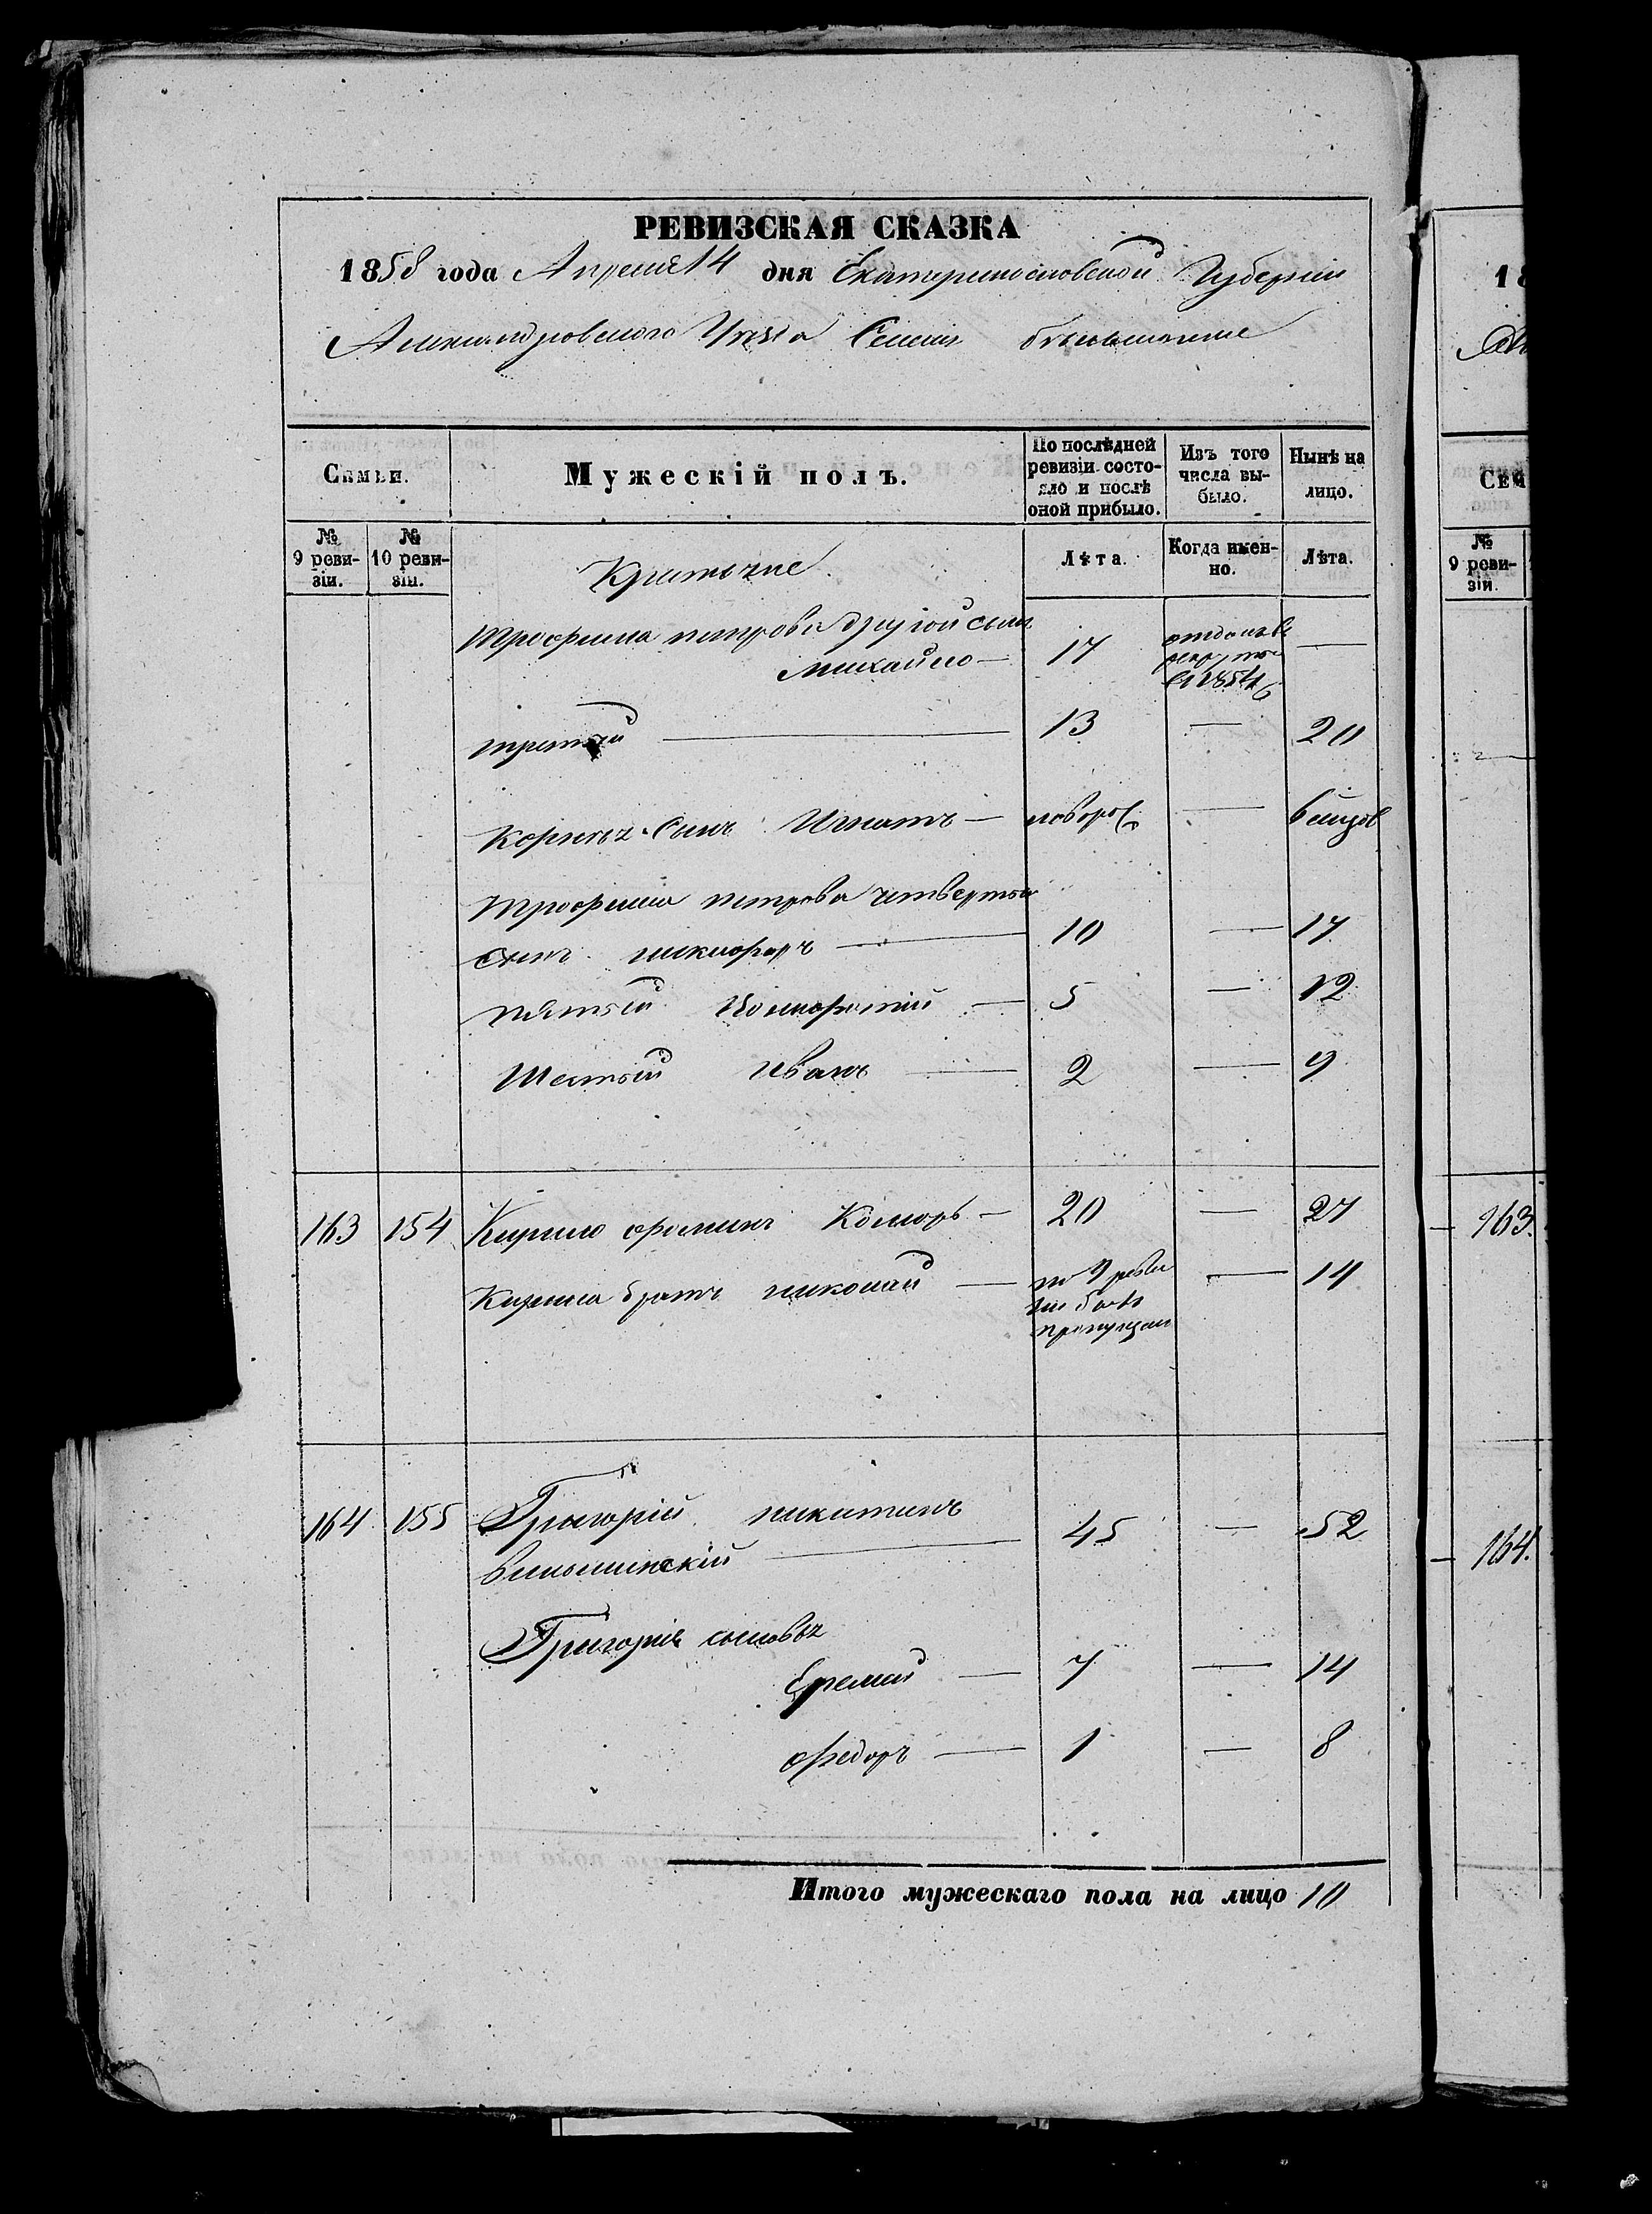 РЕВИЗСКАЯ СКАЗКА
1858 года Апреля 14 дня Екатеринославской Губерніи
Александровского Уезда Селенія
Семьи.
Мужескій полъ.
По послѣдней ревизіи состояло и послѣ оной прибыло.
Изъ того числа выбыло.
Нынѣ на лицо.
№ 9 ревизіи.
№ 10 ревизіи.
Лѣта.
Когда именно.
Лѣта.
Трофима петрова другой сынъ
Михайло — 17 отданъ в рекруты в 1854 —
третий — 13 — 20
сынъ Игнатъ — новорож —
Трофима петрова четвертый
сынъ никифоръ — 10 — 17
пятый — 5 — 12
Шестый Иванъ — 2 — 9
163 154 Кирило фоминъ Комаръ — 20 — 27
Кирила братъ николай — по 9 ревизии былъ пропущен — 14
164 155 Григорій никитинъ
— 45 — 52
Григорія сыновья
Еремий — 7 — 14
Федоръ — 1 — 8
Итого мужескаго пола на лицо 10
18
Сем
№ 9 ревизіи.
163.
164.